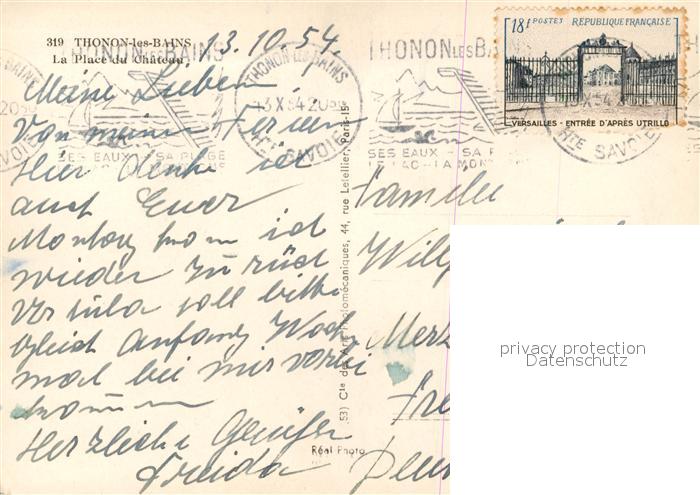 319 THONON-les-BAINS
La Place du Château
13.10.54.
Meine Lieben
Von meinen Ferien
Hier denke ich
auch Euer
Montag komm ich
wieder zurück
Ursula soll bitte
gleich Anfang Woch
mal bei mir vorbei
kommen
Herzliche Grüße
Freida
THONON LES BAINS
THONON-LES-BAINS
13 X 54 20
HTE SAVOIE
SES EAUX - SA PLAGE
SON LAC - LA MONTAGNE
18F POSTES RÉPUBLIQUE FRANÇAISE
VERSAILLES - ENTRÉE D'APRÈS UTRILLO
Familie
Will
(53) Cie des Arts Photomécaniques, 44, rue Letellier, Paris-15
Réal-Photo
privacy protection
Datenschutz